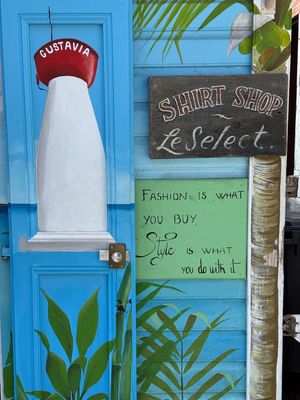 GUSTAVIA
SHIRT SHOP
~ Le Select.
FASHION IS WHAT
YOU BUY,
Style IS WHAT
YOU do with it